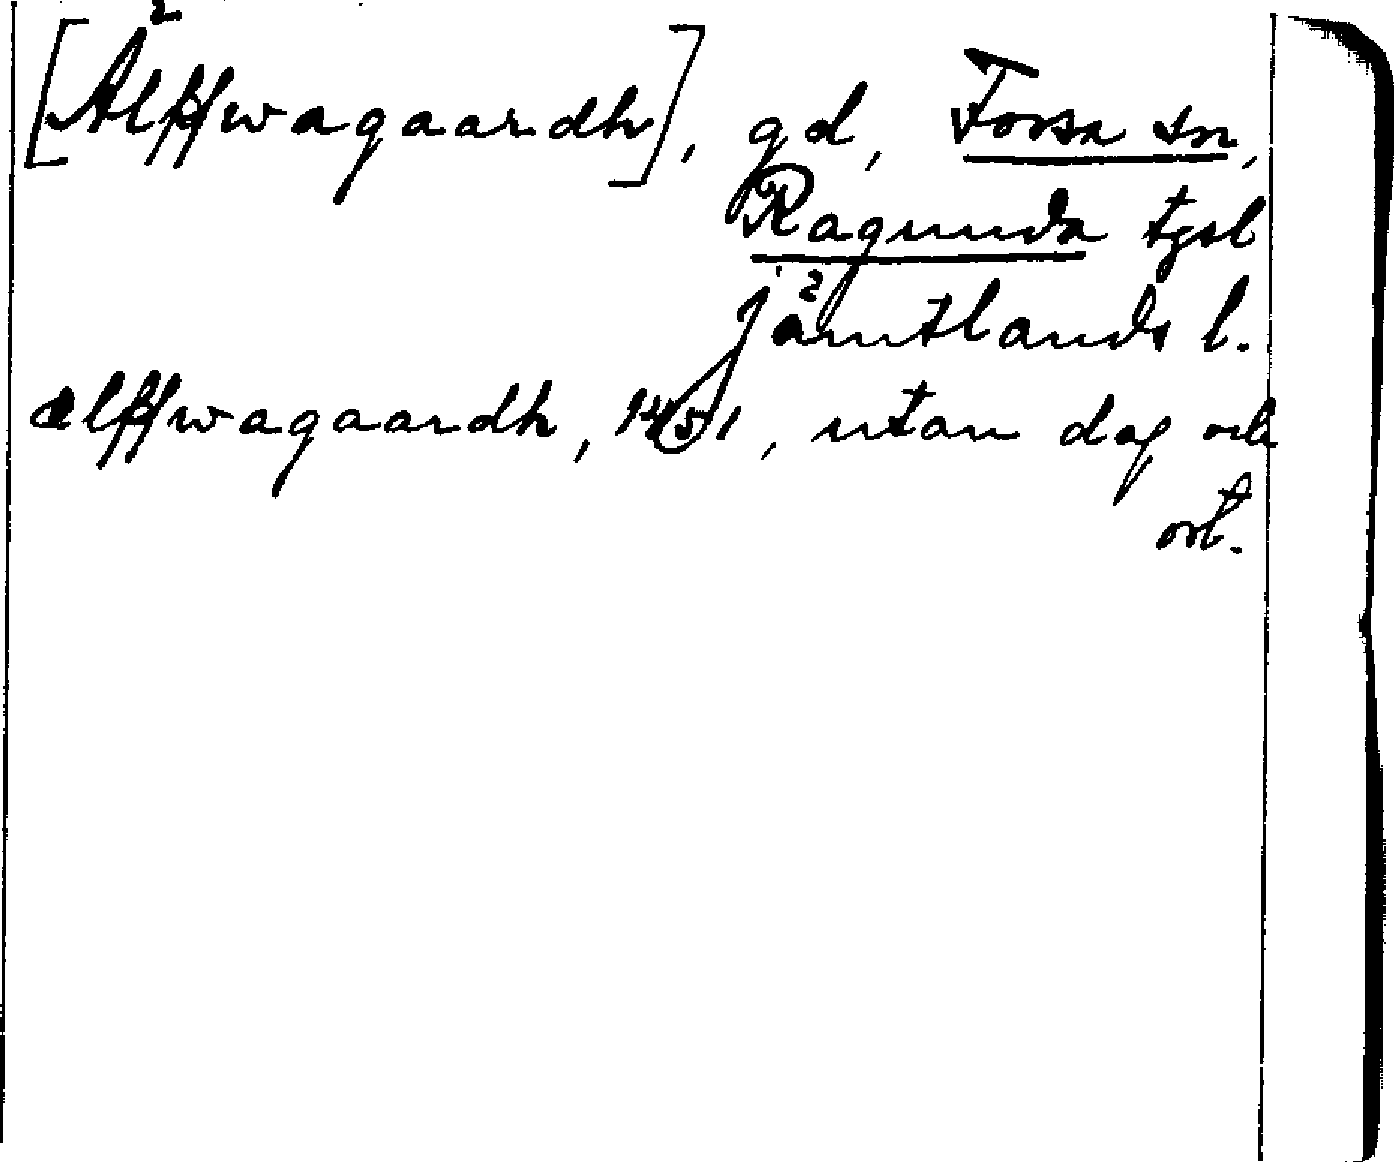 [Älffwagaardh], gd, Forsa sn,
Ragunda tgsl
Jämtlands l.
ælffwagaardh, 1451, utan dag och
ort.